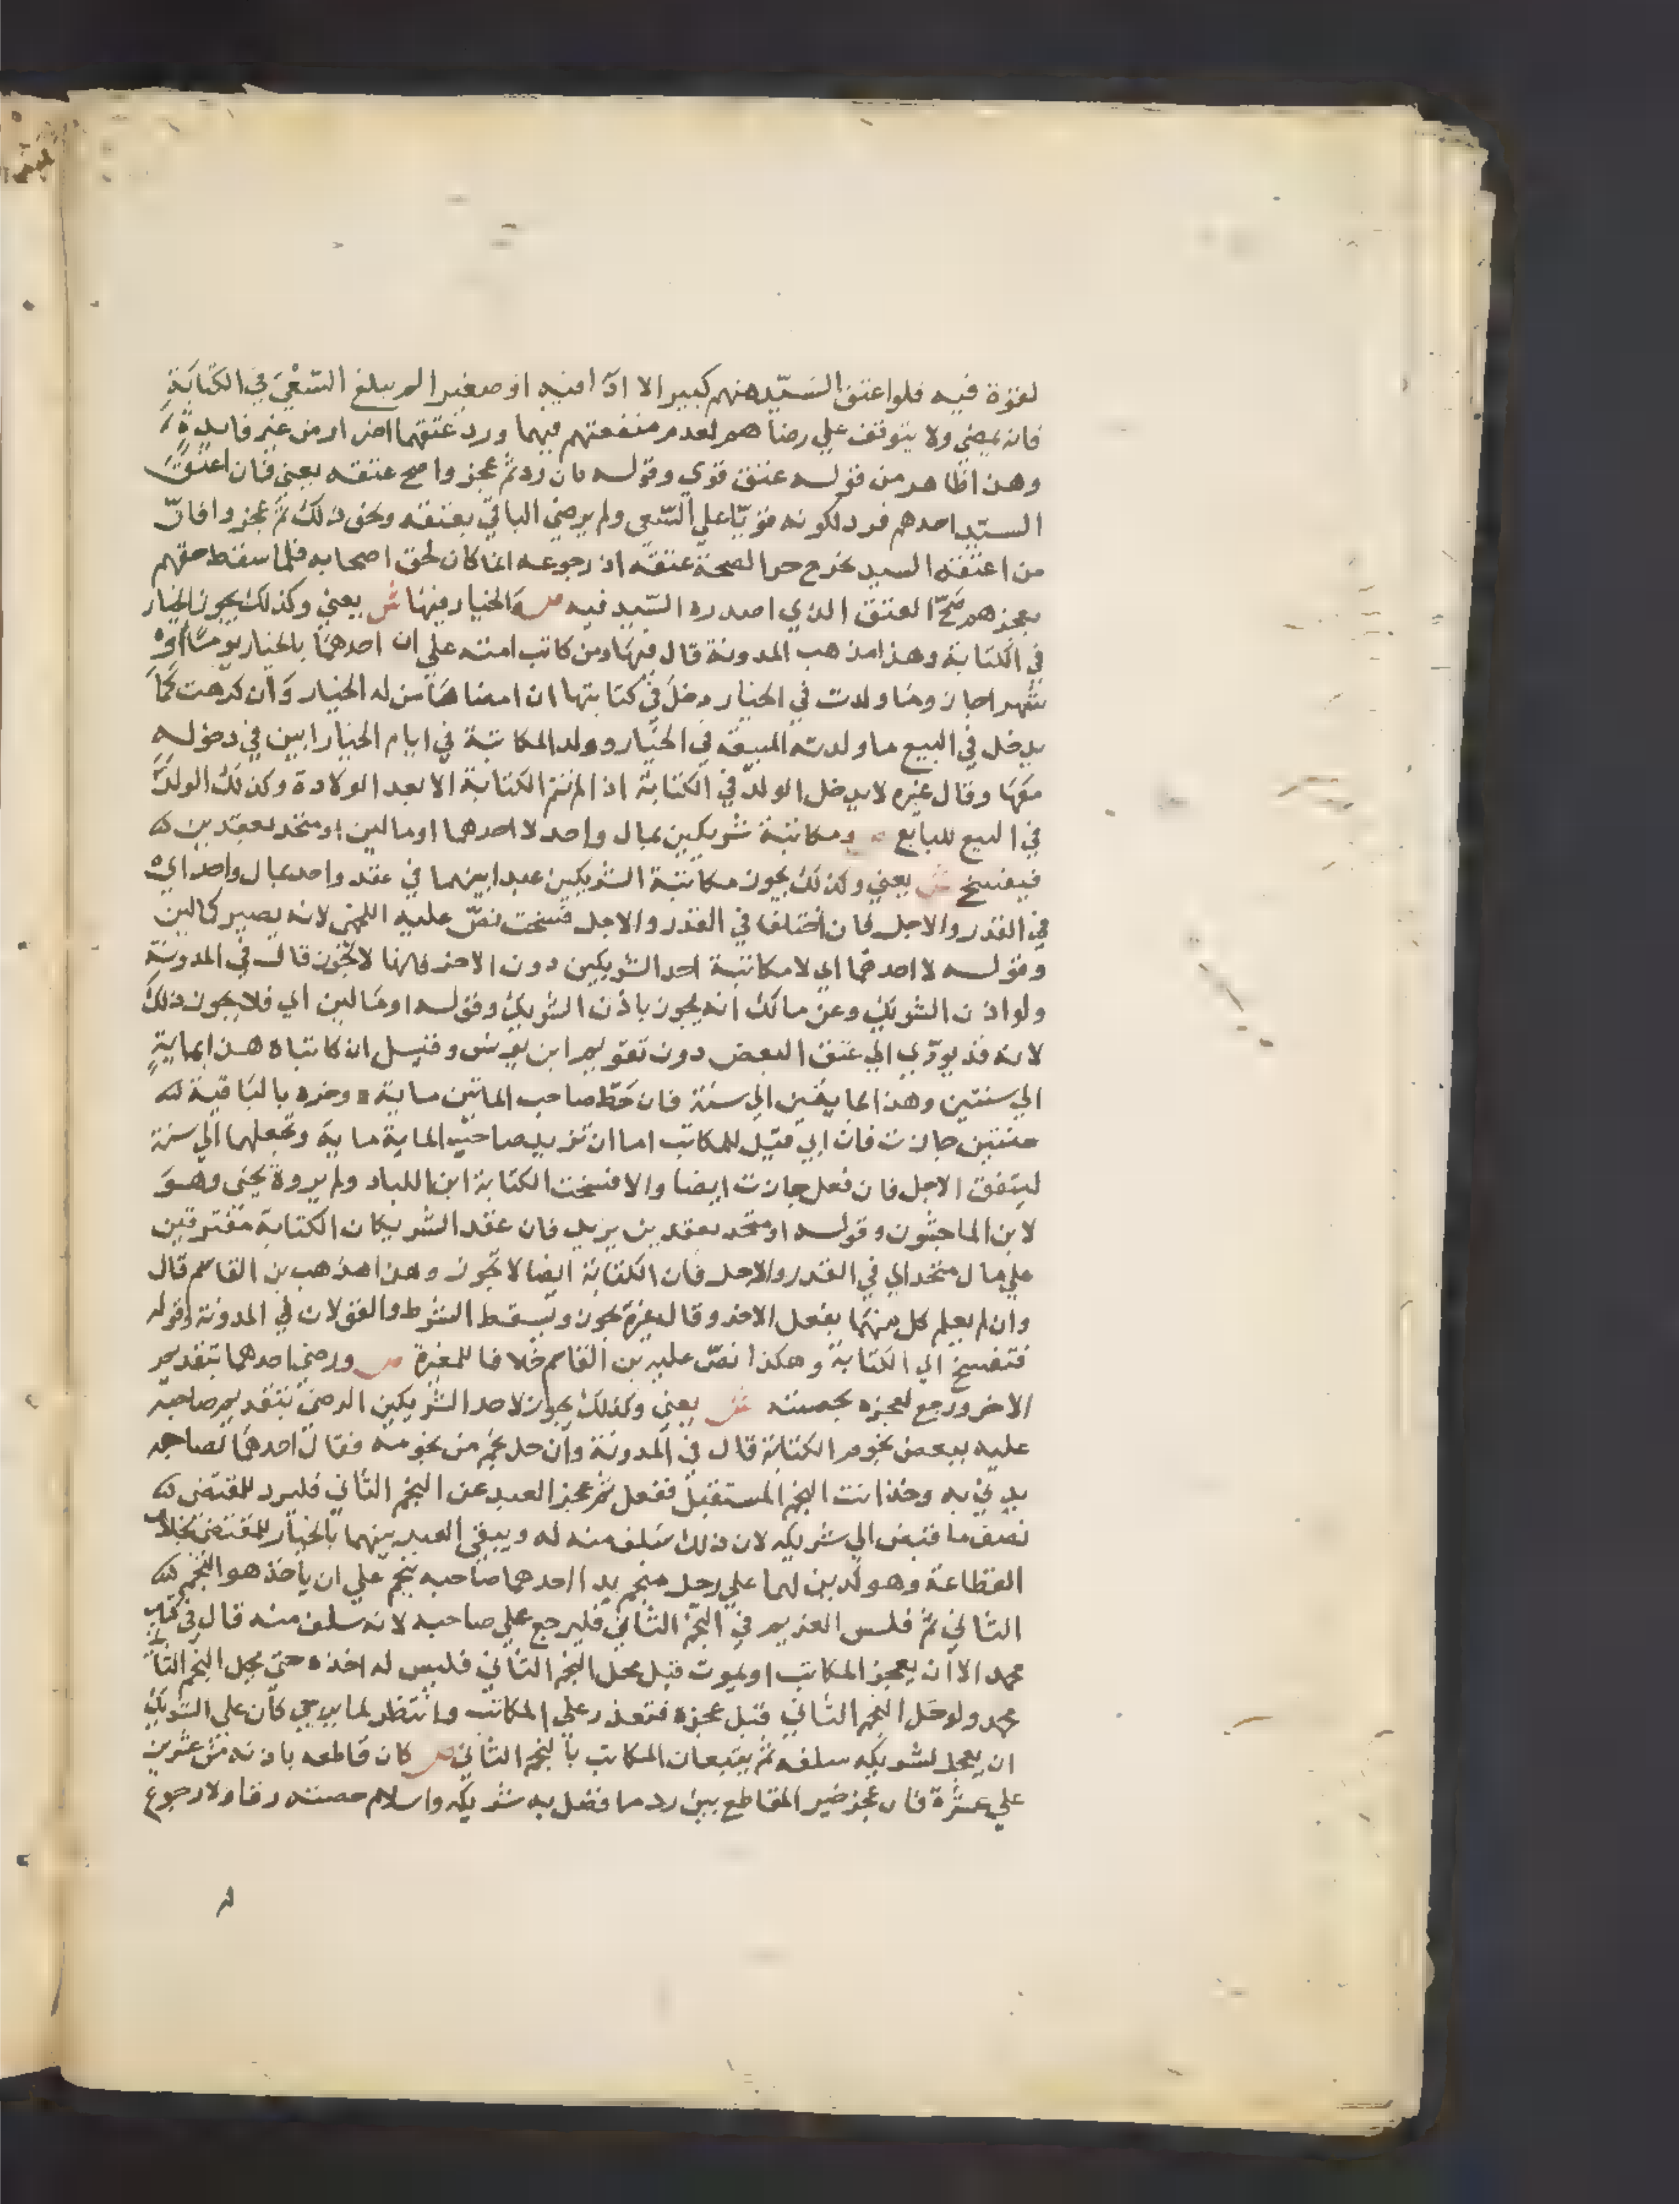 لقوة فيه فلو اعتق السيد منهم كبيرا لا اداء فيه او صغيرا لم يبلغ السعي في الكتابة
فانه يمضي ولا يتوقف علي رضاهم لعدم منفعتهم فيهما ورد عتقهما اضرار من غير فايدة
وهذا ظاهر من قوله عتق قوي وقوله فان رد ثم عجزوا صح عتقه يعني فان اعتق
السيد احدهم فرد لكونه قويا علي السعي ولم يرضي الباقي بعتقه ونحو ذلك ثم عجزوا فان
من اعتقه السيد يخرج حرا لصحة عتقه اذ رجوعه انما كان لحق اصحابه فلما سقط حقهم
بعجزهم صح العتق الذي اصدره السيد فيه ص والخيار فيها ش يعني وكذلك يجوز الخيار
في الكتابة وهذا مذهب المدونة قال فيها ومن كاتب امته علي ان احدهما بالخيار يوما او
شهرا جاز وما ولدت في الخيار دخل في كتابتها ان امضاها من له الخيار وان كرهت كما
يدخل في البيع ما ولدته المبيعة في الخيار وولد المكاتبة في ايام الخيار ابين في دخوله
معها وقال غيره لا يدخل الولد في الكتابة اذ لم تتم الكتابة الا بعد الولادة وكذلك الولد
في البيع للبايع ص ومكاتبة شريكين بمال واحد لا احدهما او مالين او متحد بعقدين
فيفسخ ش يعني وكذلك يجوز مكاتبة الشريكين عبدا بينهما في عقد واحد بمال واحد اي
في القدر والاجل فان اختلفا في القدر والاجل فسخت نص عليه اللخمي لانه يصير كمالين
وقوله لا احدهما اي لا مكاتبة احد الشريكين دون الاخر فانها لا تجوز قال في المدونة
ولو اذن الشريك وعن مالك انه يجوز باذن الشريك وقوله او مالين اي فلا يجوز ذلك
لانه قد يودي الي عتق البعض دون تقويم ابن يونس وقيل ان كاتباه هذا بماية
الي سنتين وهذا بمايتين الي سنة فان حط صاحب الماتين ماية وخره بالباقية
سنتين جازت فان ابي قيل للمكاتب اما ان تزيد صاحب الماية ماية وتجعلها الي سنة
ليتفق الاجل فان فعل جازت ايضا والا فسخت الكتابة ابن اللباد ولم يروه يحيى وهو
لابن الماجشون وقوله او متحد بعقدين يريد فان عقد الشريكان الكتابة مفترقين
علي مال متحد اي في القدر والاجل فان الكتابة ايضا لا تجوز وهذا مذهب بن القاسم قال
وان لم يعلم كل منهما بفعل الاخر وقال غيره يجوز ويسقط الشرط والقولان في المدونة وقوله
فتفسخ اي الكتابة وهكذا نص عليه بن القاسم خلافا للمغيرة ص ورضي احدهما بتقديم
الاخر ورجع لعجزه بحصته ش يعني وكذلك يجوز لاحد الشريكين الرضي بتقديم صاحبه
عليه ببعض نجوم الكتابة قال في المدونة وان حل نجم من نجومه فقال احدهما لصاحبه
بديني به وخذ انت النجم المستقبل ففعل ثم عجز العبد عن النجم الثاني فليرد المقتضي
نصف ما قبض الي شريكه لان ذلك سلف منه له ويبقي العبد بينهما بالخيار للمقتضي بخلاف
القطاعة وهو كدين لهما علي رجل منجم بدا احدهما صاحبه بنجم علي ان ياخذ هو النجم
الثاني ثم فلس الغريم في النجم الثاني فليرجع علي صاحبه لانه سلف منه قال في كتاب
محمد الا ان يعجز المكاتب او يموت قبل محل النجم الثاني فليس له اخذه حتي يحل النجم الثاني
محمد ولو حل النجم الثاني قبل عجزه فتعذر علي المكاتب وانتظر لما يرجي كان علي الشريك
ان يعجل لشريكه سلفه ثم يتبعان المكاتب بالنجم الثاني ص كان قاطعه باذنه من عشرين
علي عشرة فان عجز خير المقاطع بين رد ما فضل به شريكه واسلام حصته رقا ولا رجوع